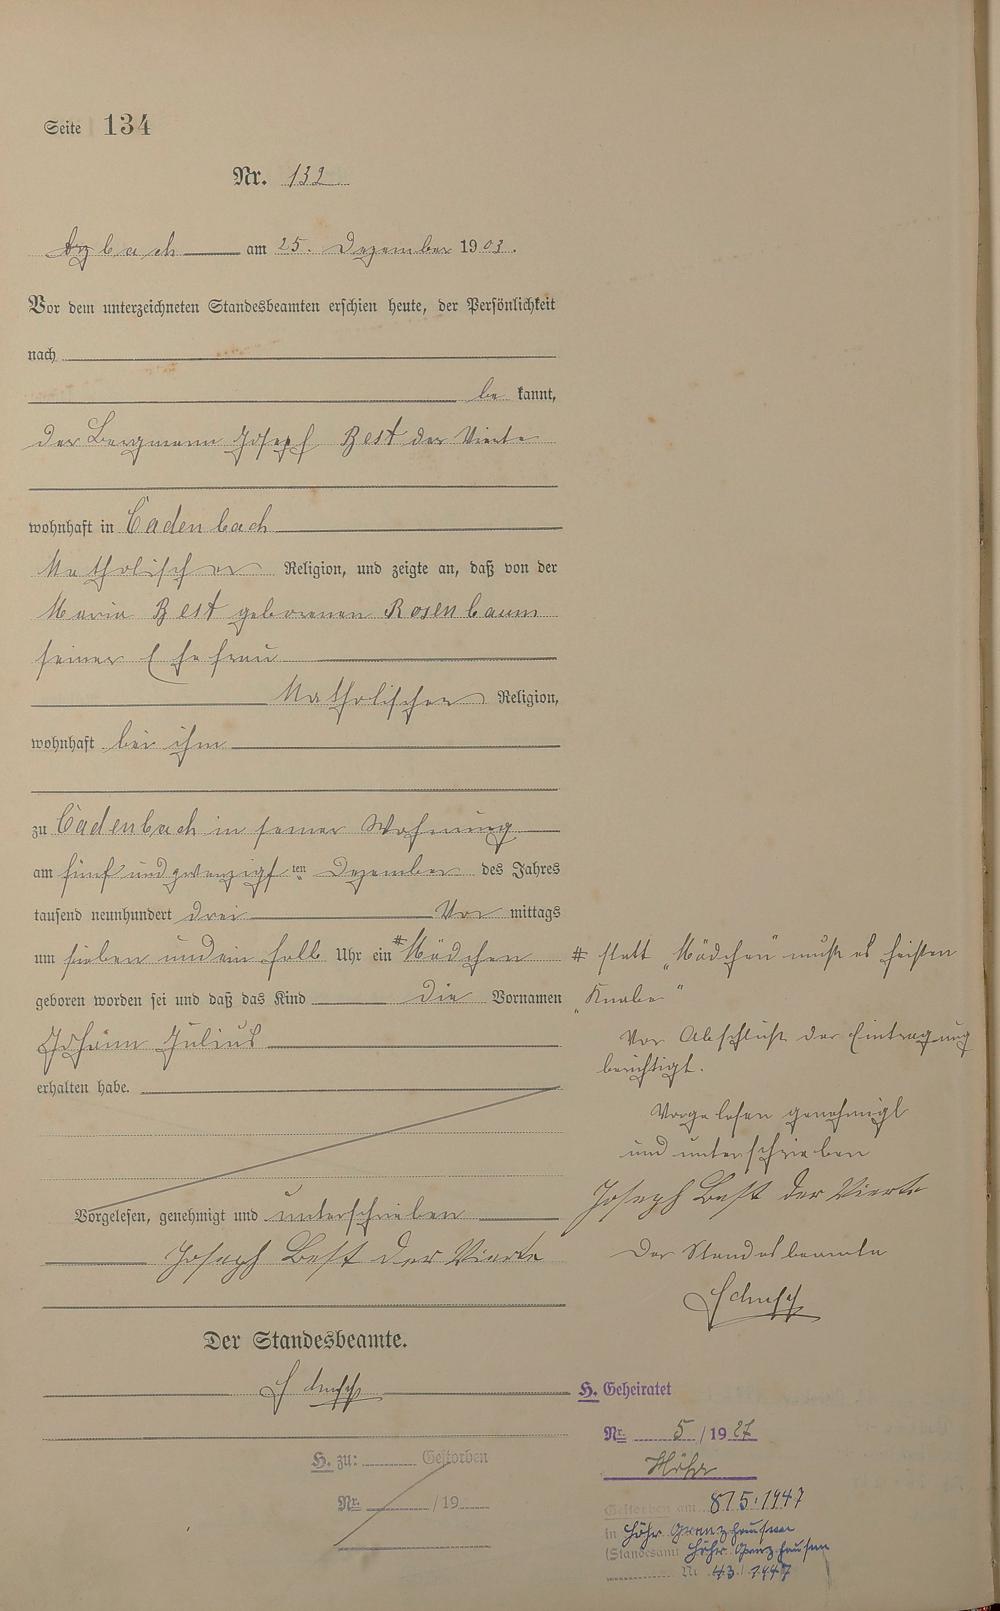 Seite 134
Nr. 132
Arzbach am 25. Dezember 1903.
Vor dem unterzeichneten Standesbeamten erschien heute, der Persönlichkeit
nach
be kannt,
der Bergmann Joseph Best der Vierte
wohnhaft in Cadenbach
Katholischer Religion, und zeigte an, daß von der
Maria Best geborenen Rosenbaum
seiner Ehefrau
Katholischer Religion,
wohnhaft bei ihm
zu Cadenbach in seiner Wohnung
am fünf und zwanzigsten Dezember des Jahres
tausend neunhundert drei Vor mittags
um sieben und ein halb Uhr ein # Mädchen
geboren worden sei und daß das Kind die Vornamen
Johann Julius
erhalten habe.
Vorgelesen, genehmigt und unterschrieben
Joseph Best der Vierte
Der Standesbeamte.
H. zu: Gestorben
Nr. /19
# statt „Mädchen" muß es heißen
„Knabe"
Vor Abschluß der Eintragung
berichtigt.
Vorgelesen genehmigt
und unterschrieben
Joseph Best der Vierte
Der Standesbeamte
H. Geheiratet
Nr. 5/1927
Höhr
Gestorben am 8.5.1947
in Höhr Grenzhausen
(Standesamt Höhr-Grenzhausen
Nr. 43/1947